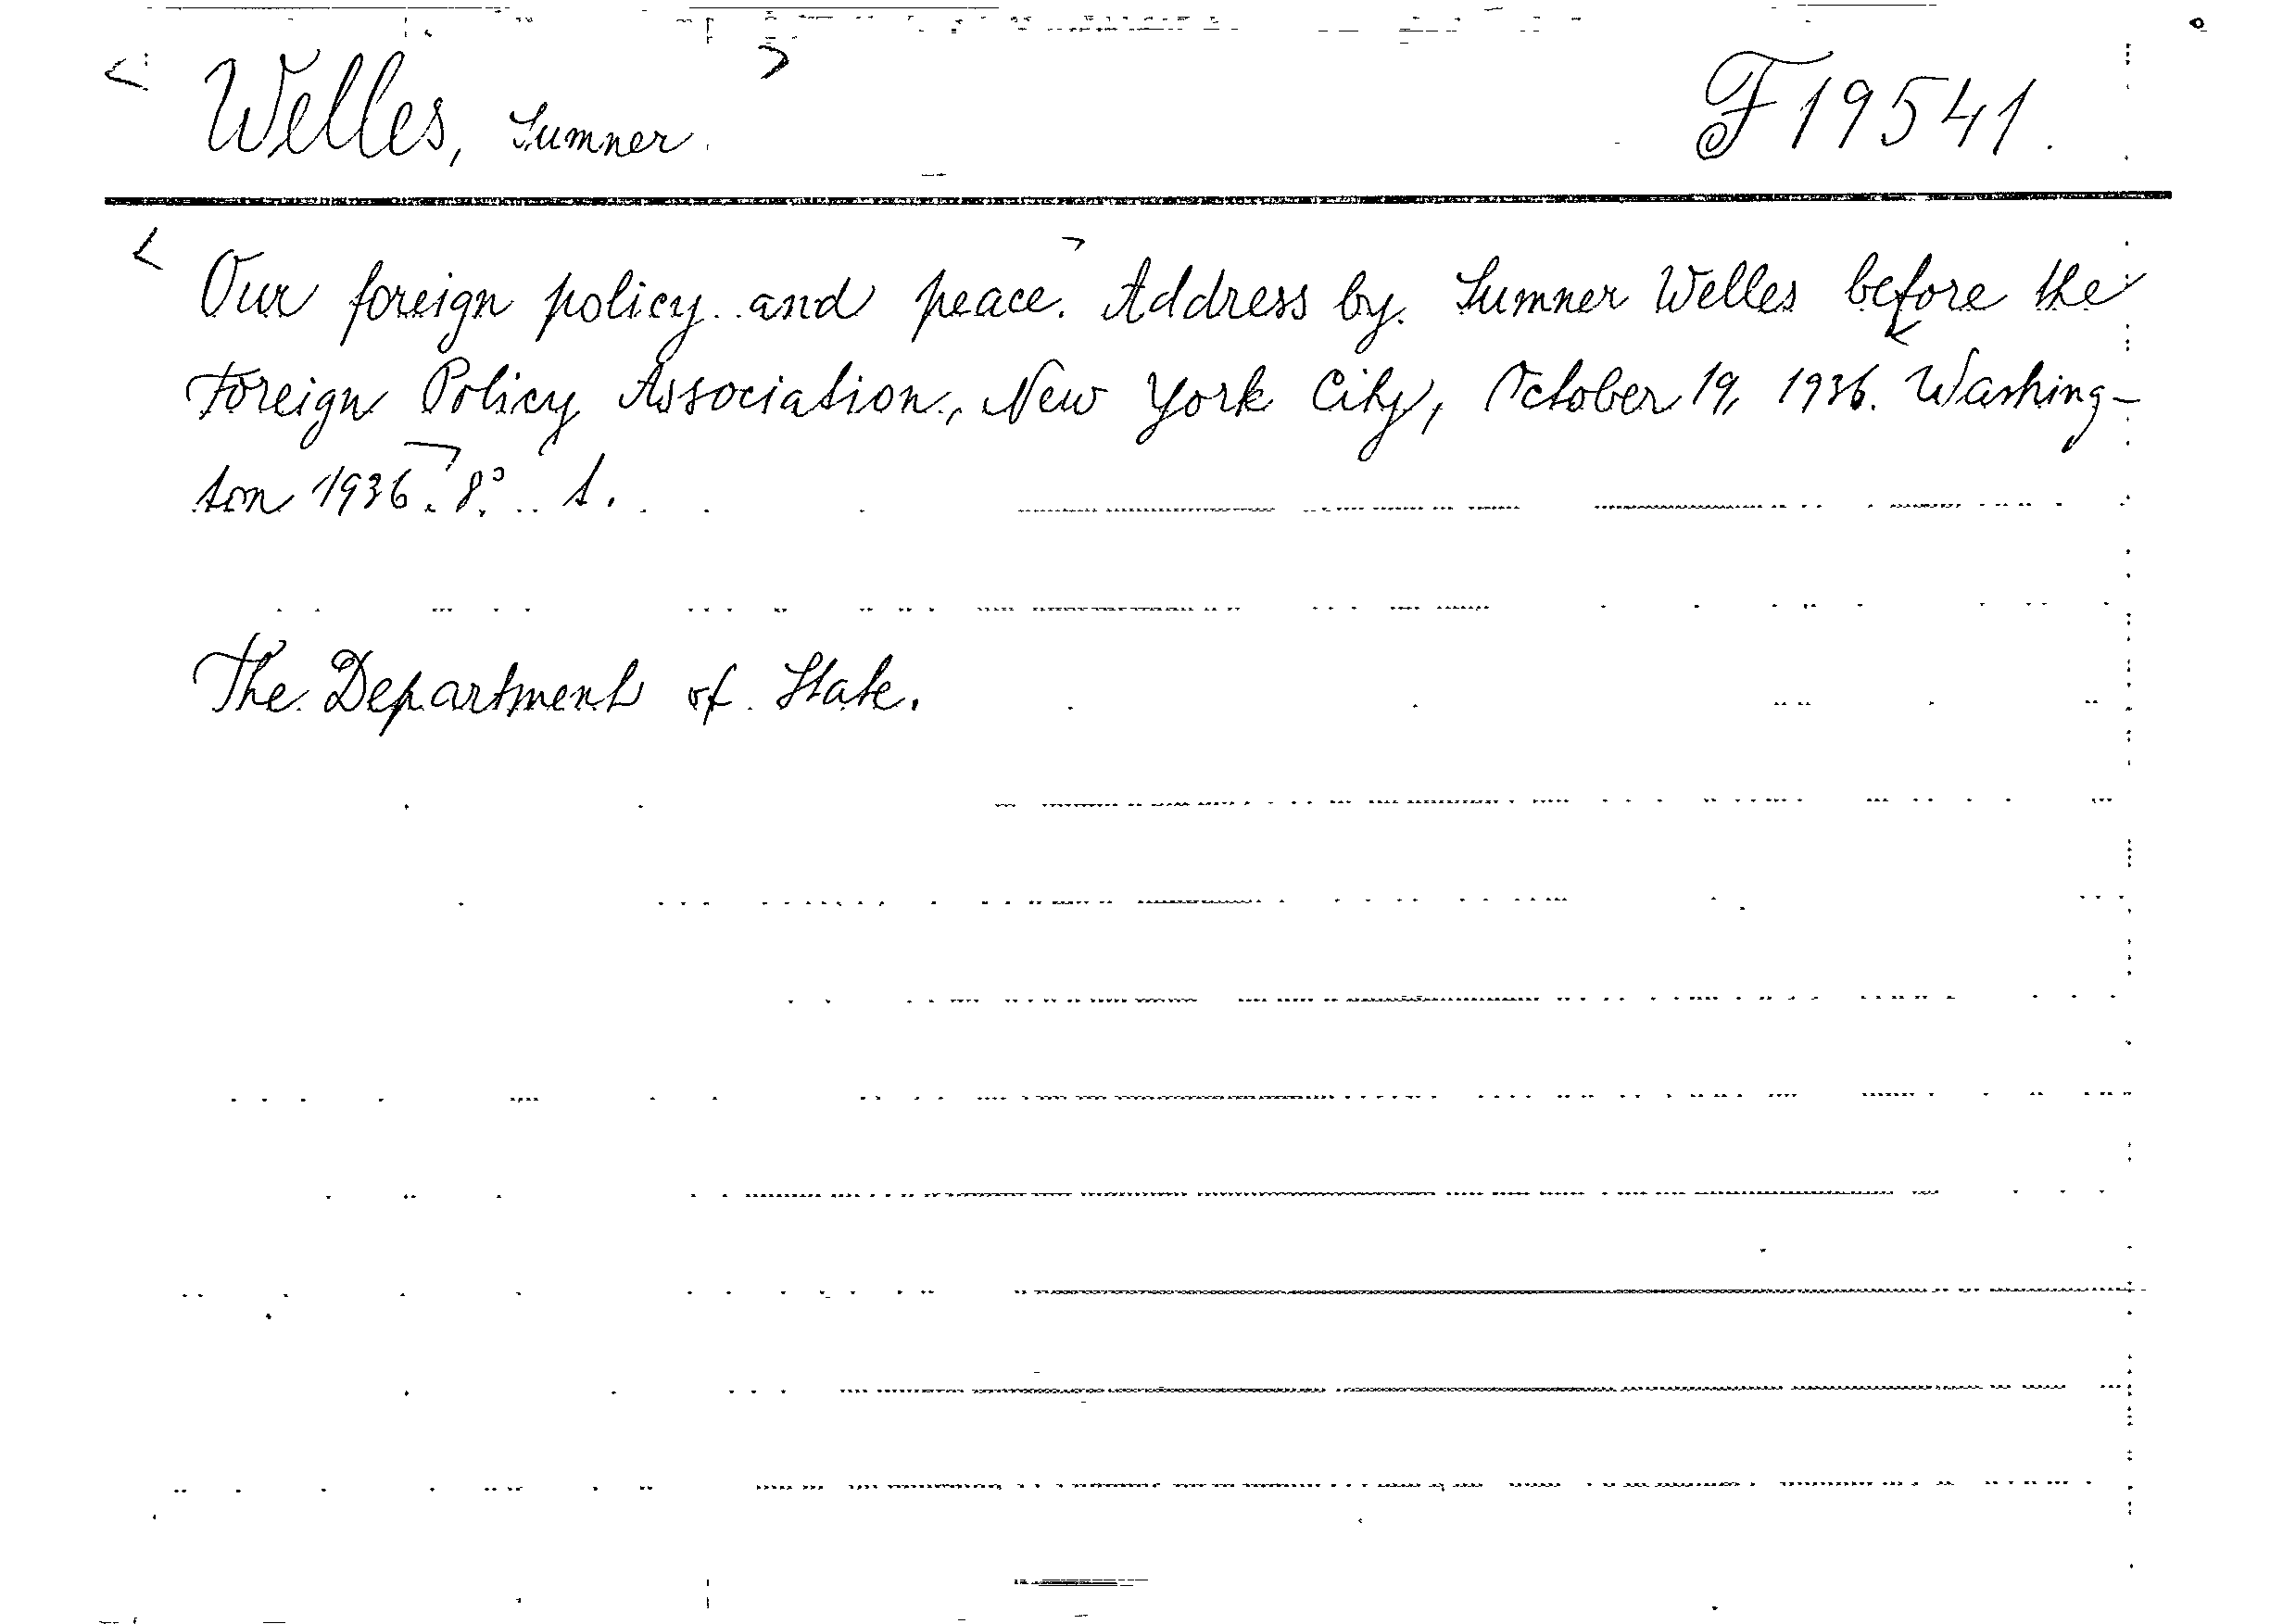 Welles, Sumner. F 19541.
Our foreign policy and peace. Address by Sumner Welles before the
Foreign Policy Association, New York City, October 19, 1936. Washing-
ton 1936. 8° 1.
The Department of State.